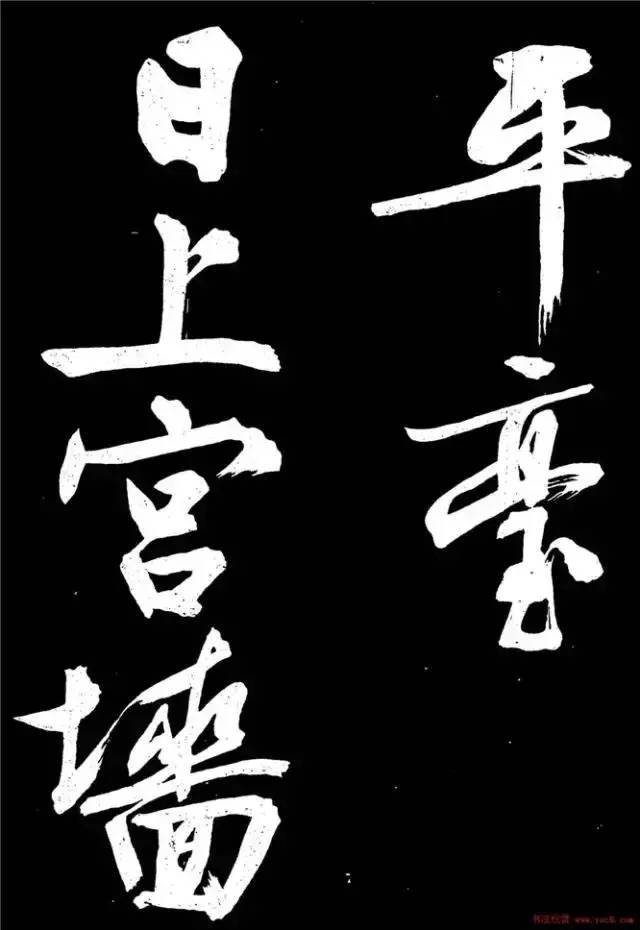 平臺
日上宮墻
书法欣赏 www.yac8.com